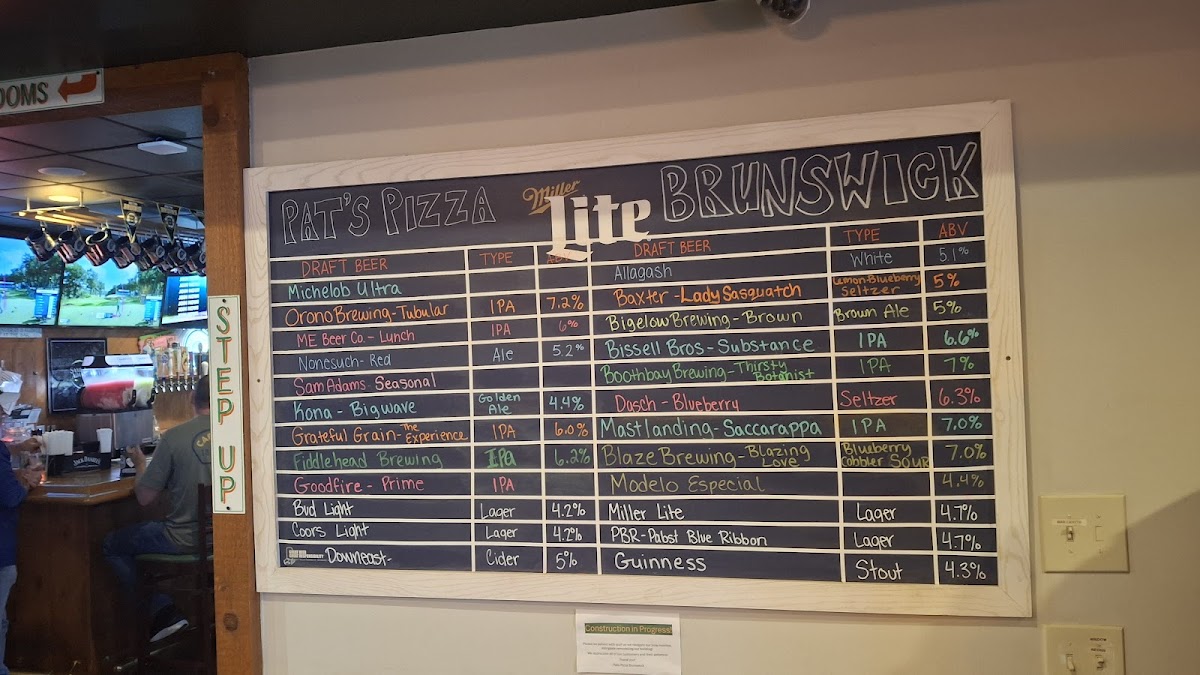 OOMS
STEP UP
PAT'S PIZZA Miller Lite BRUNSWICK
DRAFT BEER TYPE
Michelob Ultra
Orono Brewing-Tubular IPA 7.2%
ME Beer Co.- Lunch IPA 6%
Nonesuch-Red Ale 5.2%
Sam Adams-Seasonal
Kona - Bigwave Golden Ale 4.4%
Grateful Grain-The Experience IPA 6.0%
Fiddlehead Brewing IPA 6.2%
Goodfire - Prime IPA
Bud Light Lager 4.2%
Coors Light Lager 4.2%
Downeast- Cider 5%
DRAFT BEER TYPE ABV
Allagash White 5.1%
Baxter-Lady Sasquatch Lemon-Blueberry Seltzer 5%
Bigelow Brewing-Brown Brown Ale 5%
Bissell Bros-Substance IPA 6.6%
Boothbay Brewing-Thirsty Botanist IPA 7%
Dasch-Blueberry Seltzer 6.3%
Mast Landing-Saccarappa IPA 7.0%
Blaze Brewing-Blazing Love Blueberry Cobbler Sour 7.0%
Modelo Especial 4.4%
Miller Lite Lager 4.7%
PBR-Pabst Blue Ribbon Lager 4.7%
Guinness Stout 4.3%
Construction in Progress